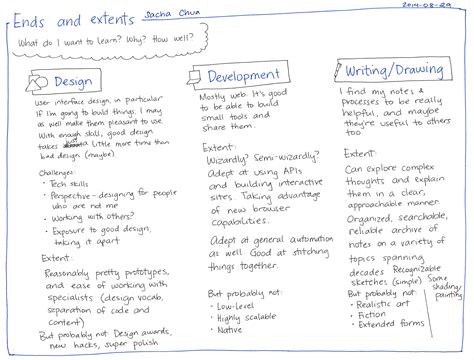 Ends and extents Sacha Chua
2014-08-29
What do I want to learn? Why? How well?
Design
User interface design, in particular
If I'm going to build things, I may
as well make them pleasant to use.
With enough skill, good design
takes a little more time than
bad design (maybe)
Challenges:
• Tech skills
• Perspective - designing for people
who are not me
• Working with others?
• Exposure to good design,
taking it apart
Extent:
Reasonably pretty prototypes,
and ease of working with
specialists (design vocab,
separation of code and
content)
But probably not: Design awards,
new hacks, super polish
Development
Mostly web. It's good
to be able to build
small tools and
share them.
Extent:
Wizardly? Semi-wizardly?
Adept at using APIs
and building interactive
sites. Taking advantage
of new browser
capabilities.
Adept at general automation
as well. Good at stitching
things together.
But probably not:
• Low-level
• Highly scalable
• Native
Writing/Drawing
I find my notes &
processes to be really
helpful, and maybe
they're useful to others
too.
Extent:
Can explore complex
thoughts and explain
them in a clear,
approachable manner.
Organized, searchable,
reliable archive of
notes on a variety of
topics spanning
decades Recognizable
sketches (simple)
Some
shading/
painting
But probably not:
• Realistic art
• Fiction
• Extended forms